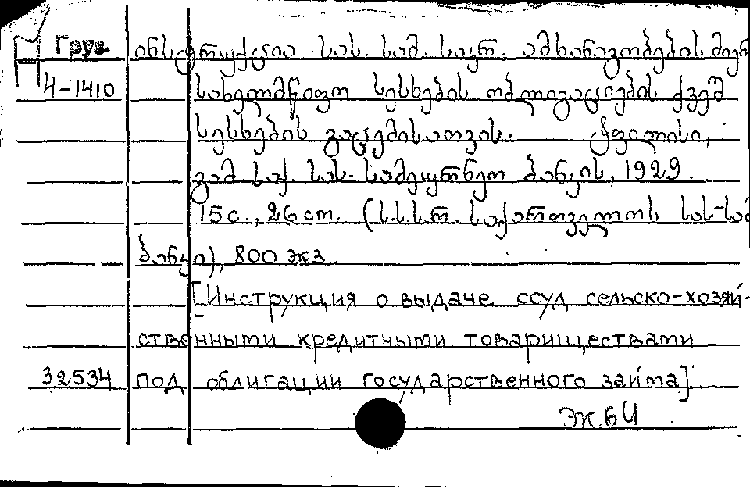 Груз. ინსტრუქცია სას. სამ. საკრ. ამხანაგობების მიერ
4-1410 სახელმწიფო სესხების ობლიგაციების ქვეშ
სესხების გაცემისათვის. ტფილისი,
გამ. საქ. სას.-სამეურნეო ბანკის, 1929.
15с., 26 cm. (ს.ს.ს.რ. საქართველოს სას-სამ
ბანკი), 800 экз.
[Инструкция о выдаче ссуд сельско-хозяй-
ственными кредитными товариществами
32534 под облигации государственного займа].
Эк.БИ